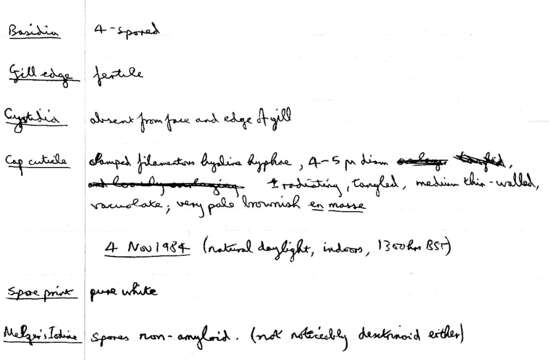 Basidia 4-spored
Gill edge fertile
Cystidia absent from face and edge of gill
Cap cuticle clamped filamentous hyaline hyphae, 4-5 µ diam
± radiating, tangled, medium thin-walled,
vacuolate; very pale brownish en masse
4 Nov 1984 (natural daylight, indoors, 1300hrs BST)
Spore print pure white
Melzer's Iodine spores non-amyloid. (not noticeably dextrinoid either)